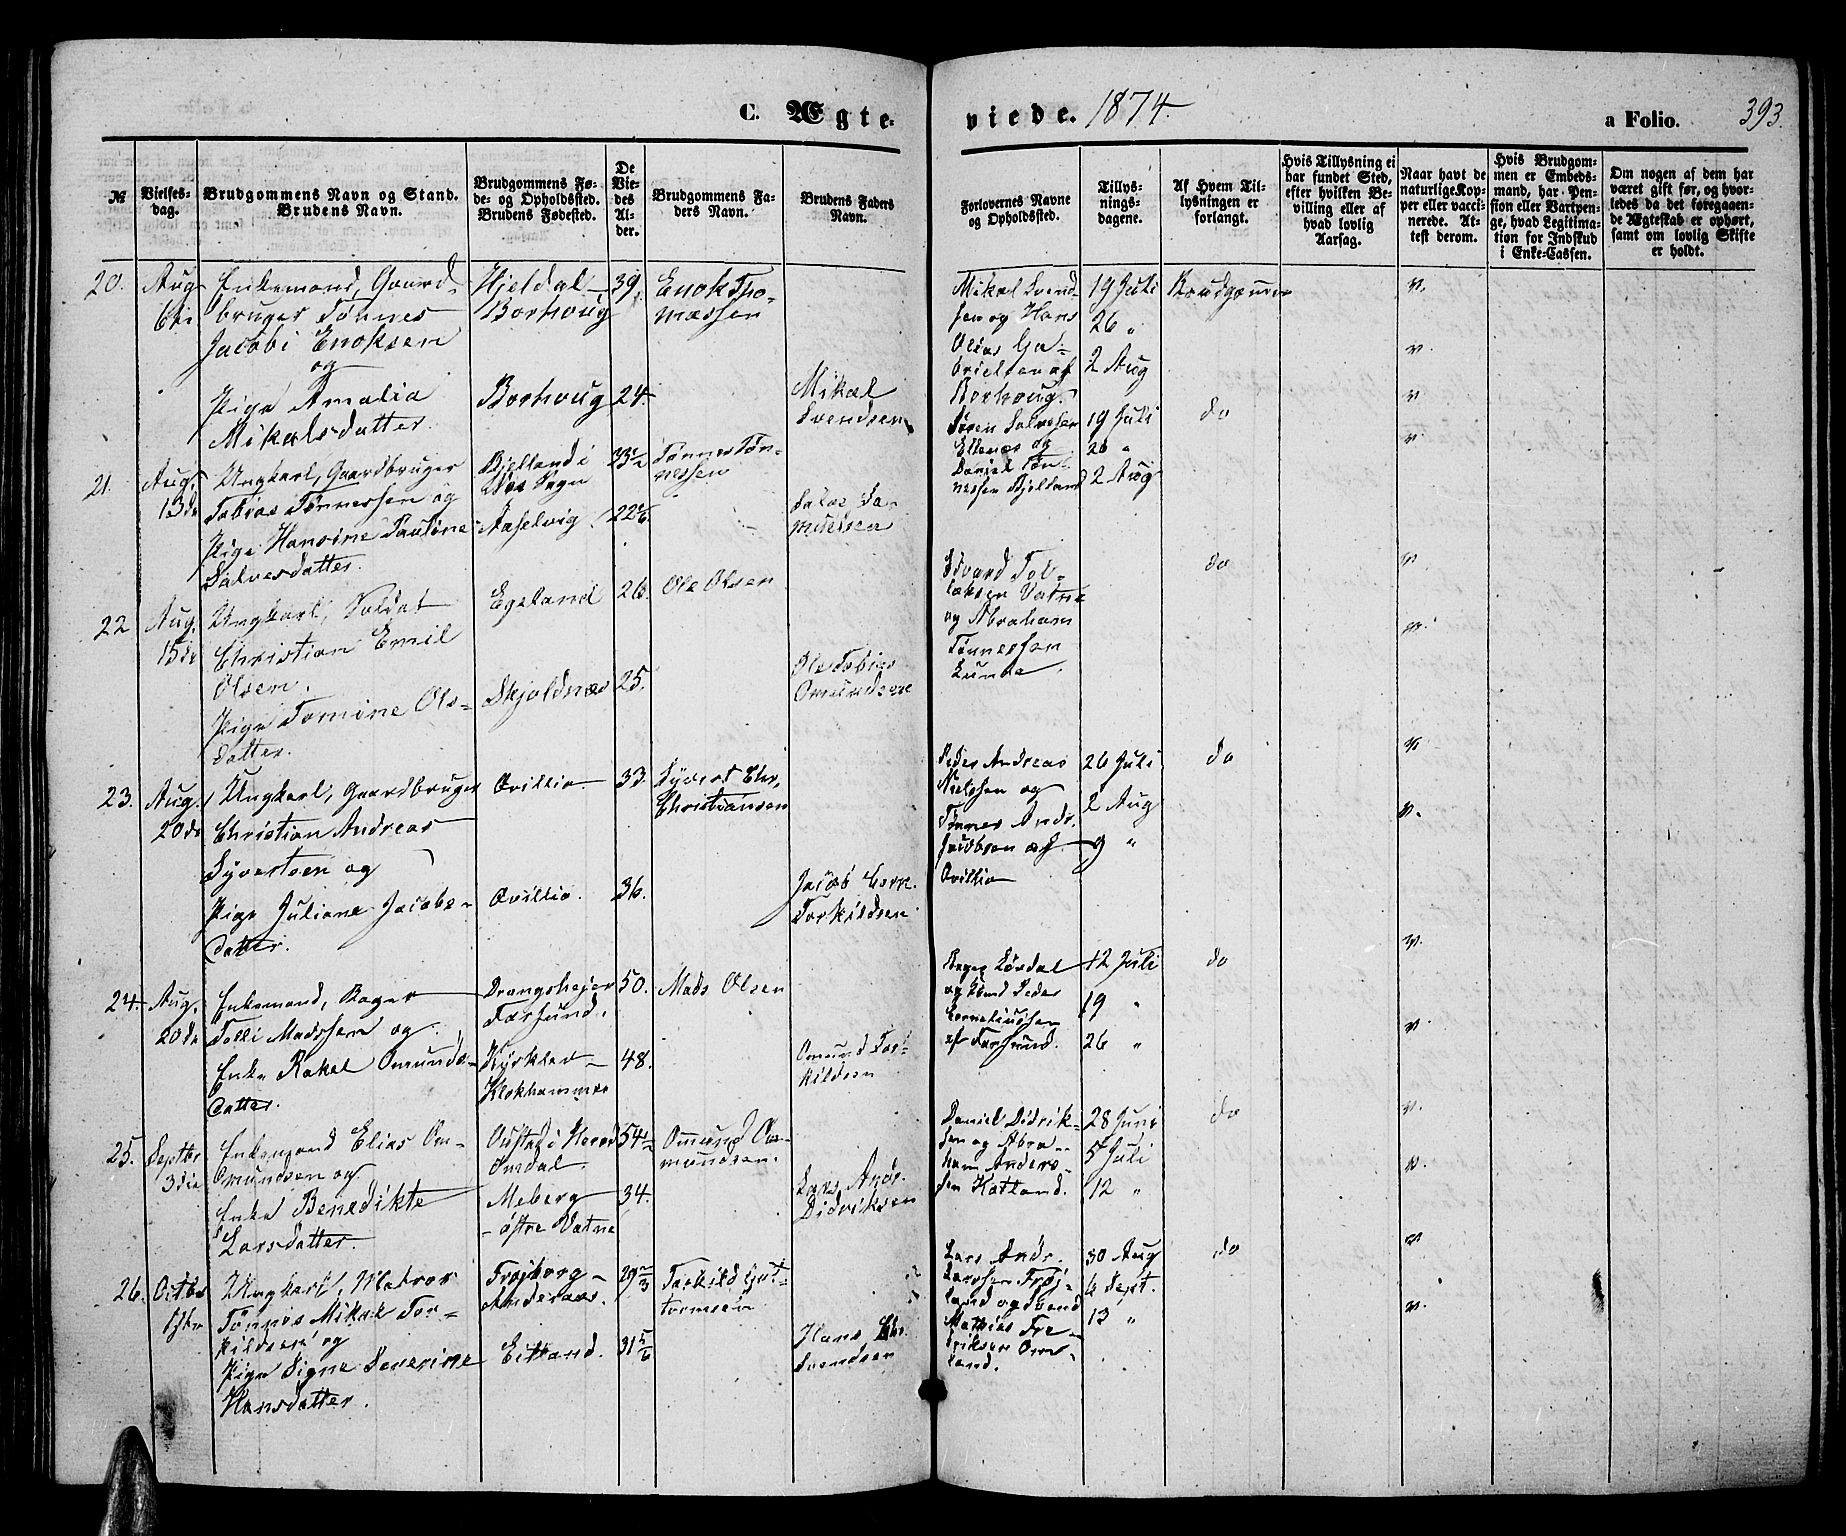 C. Ægte-
viede. 1874.
a Folio. 393.
№
Vielses-
dag.
Brudgommens Navn og Stand.
Brudens Navn.
Brudgommens Fø-
de- og Opholdssted.
Brudens Fødested.
De
Vie-
des
Al-
der.
Brudgommens Fa-
ders Navn.
Brudens Faders
Navn.
Forlovernes Navne
og Opholdssted.
Tillys-
nings-
dagene.
Af Hvem Til-
lysningen er
forlangt.
Hvis Tillysning ei
har fundet Sted,
efter hvilken Be-
villing eller af
hvad lovlig
Aarsag.
Naar havt de
naturlige Kop-
per eller vacci-
nerede. At-
test derom.
Hvis Brudgom-
men er Embeds-
mand, har Pen-
sion eller Vartpen-
ge, hvad Legitima-
tion for Indskud
i Enke-Cassen.
Om nogen af dem har
været gift før, og hvor-
ledes da det foregaaen-
de Ægteskab er ophørt,
samt om lovlig Skifte
er holdt.
20.
Aug
6te
Enkemand, Gaard-
bruger Tønnes
Jacobi Enoksen
og
Pige Amalia
Mikalsdatter.
Hjeldal-
Borhoug
Borhoug
39.
24.
Enok Tho-
massen
Mikal
Svendsen
Mikal Svend-
sen og Hans
Olias Ga-
brielsen af
Borhoug.
19 Juli
26 "
2 Aug
Brudgommen
v.
v.
21.
Aug.
13de
Ungkarl, Gaardbruger
Tobias Tønnessen og
Pige Hansine Pauline
Salvesdatter.
Bjelland i
Vos Sogn
Aaselvig.
33½
22⅙
Tønnes Tøn-
nessen
Salve Sa-
muelsen
Søren Salvesen
Ellenæs og
Daniel Tøn-
nessen Bjelland
19 Juli
26 "
2 Aug
do
v
v.
22
Aug.
15de
Ungkarl, Soldat
Christian Emil
Olsen.
Pige Tomine Ols-
datter.
Egeland
Skjoldnæs
26.
25.
Ole Olsen
Ole Tobias
Omundsen
Edvard Tol-
laksen Vatne
og Abraham
Tønnessen
Lunde.
do
v.
v.
23.
Aug.
20de
Ungkarl, Gaardbruger
Christian Andreas
Syvertsen og
Pige Juliane Jacobs-
datter.
Ovillia
Ovillia.
33.
36.
Syvert Chr.
Christiansen
Jacob Corn.
Torkildsen
Peder Andreas
Nielsen og
Tønnes Andr.
Jacobsen af
Ovillia
26 Juli
2 Aug
9 "
do
v.
v.
24.
Aug.
20de
Enkemand, Bager
Tolli Madssen og
Enke Rakel Omunds-
datter.
Drangshejer
Farsund.
Klokhammer
50.
48.
Mads Olsen
Omund Tor-
kildsen
Bager Lördal
Corneliussen
af Farsund.
12 Juli
19 "
26 "
do
v.
v.
25.
Septbr
3die
Enkemand Elias Om-
Omundsen og
Enke Benedikte
Larsdatter.
Oustad i Herad
Omdal.
Meberg
- østre Vatne
54½
34.
Ommund Om-
mundsen.
Lars Andr.
Didriksen
Daniel Didrik-
sen og Abra-
ham Anders-
sen Hatland.
28 Juni
5 Juli
12 "
do
v.
v.
26.
Octbr
1ste
Ungkarl, Matros
Tønnes Mikal Tor-
kildsen og
Pige Signe Severine
Hansdatter.
Frøjborg-
Andersaas.
Eitland.
29⅔
31⅚
Torkild Gut-
tormsen
Hans Chr.
Svendsen
Lars Andr.
Larssen Frøj-
land og Svend
Mathias Fre-
driksen Om-
land.
30 Aug
6 Sept.
13 "
do
v
v.